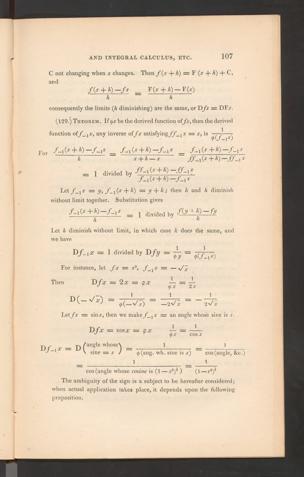 AND INTEGRAL CALCULUS, ETC. 107
C not changing when x changes. Then f(x + h) = F(x + h) + C,
and
(f(x + h) − fx)/h = (F(x + h) − F(x))/h
consequently the limits (h diminishing) are the same, or Dfx = DFx.
(129.) THEOREM. If φx be the derived function of fx, then the derived
function of f₋₁x, any inverse of fx satisfying ff₋₁x = x, is 1/φ(f₋₁x)
For (f₋₁(x + h) − f₋₁x)/h = (f₋₁(x + h) − f₋₁x)/(x + h − x) = (f₋₁(x + h) − f₋₁x)/(ff₋₁(x + h) − ff₋₁x)
= 1 divided by (ff₋₁(x + h) − ff₋₁x)/(f₋₁(x + h) − f₋₁x)
Let f₋₁x = y, f₋₁(x + h) = y + k; then h and k diminish
without limit together. Substitution gives
(f₋₁(x + h) − f₋₁x)/h = 1 divided by (f(y + k) − fy)/k
Let h diminish without limit, in which case k does the same, and
we have
Df₋₁x = 1 divided by Dfy = 1/φy = 1/φ(f₋₁x)
For instance, let fx = x², f₋₁x = −√x
Then Dfx = 2x = φx 1/φx = 1/2x
D(−√x) = 1/φ(−√x) = 1/−2√x = −1/2√x
Let fx = sin x, then we make f₋₁x = an angle whose sine is x
Dfx = cos x = φx 1/φx = 1/cos x
Df₋₁x = D(angle whose sine = x) = 1/φ(ang. wh. sine is x) = 1/cos(angle, &c.)
= 1/cos(angle whose cosine is (1−x²)^½) = 1/(1−x²)^½
The ambiguity of the sign is a subject to be hereafter considered;
when actual application takes place, it depends upon the following
proposition.